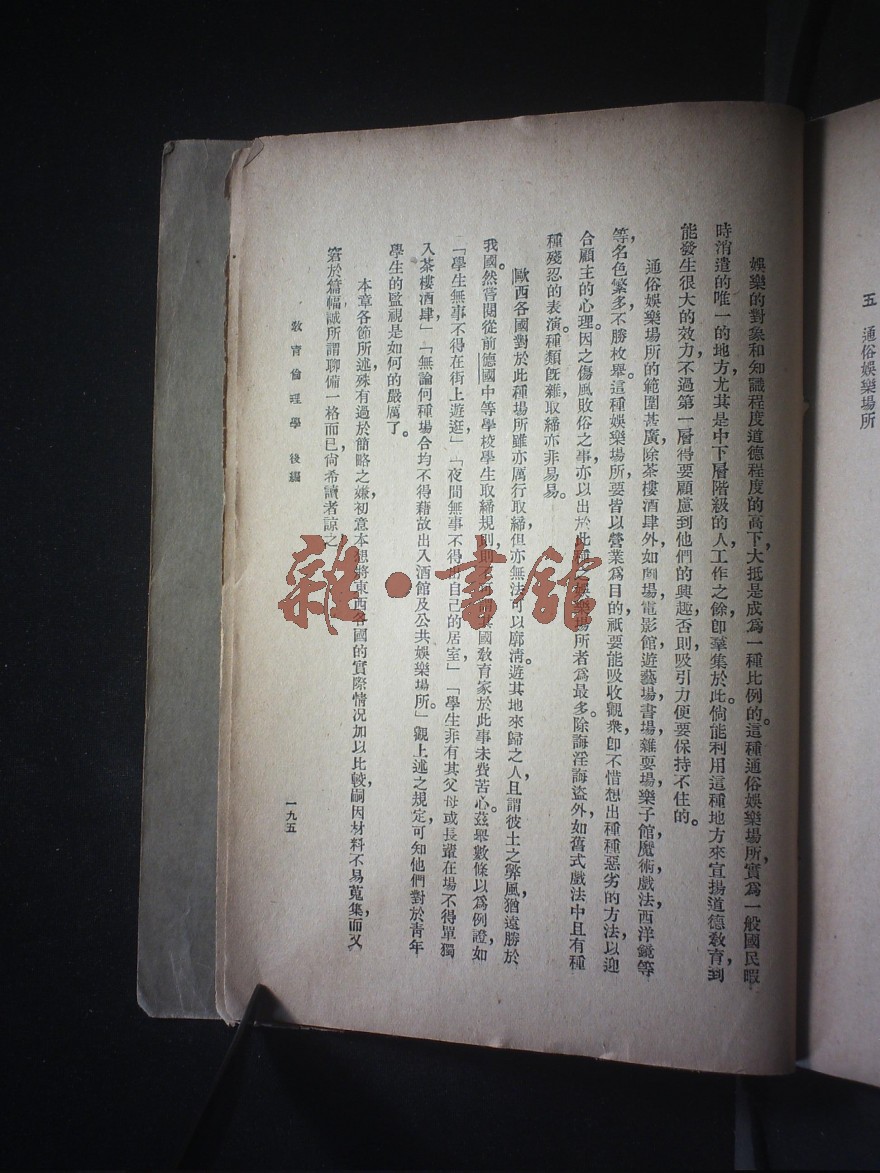 五　通俗娛樂場所
娛樂的對象和知識程度道德程度的高下，大抵是成爲一種比例的。這種通俗娛樂場所，實爲一般國民暇
時消遣的唯一的地方，尤其是中下層階級的人，工作之餘，卽羣集於此。倘能利用這種地方來宣揚道德敎育，到
能發生很大的效力，不過第一層得要顧慮到他們的興趣，否則吸引力便要保持不住的。
通俗娛樂場所的範圍甚廣，除茶樓酒肆外，如劇場，電影館，遊藝場，書場，雜耍場，樂子館，魔術，戲法，西洋鏡等
等，名色繁多，不勝枚舉。這種娛樂場所，要皆以營業爲目的，祇要能吸收觀衆，卽不惜想出種種惡劣的方法，以迎
合顧主的心理。因之傷風敗俗之事，亦以出於此種之娛樂場所者爲最多。除誨淫誨盜外，如舊式戲法中且有種
種殘忍的表演。種類旣雜，取締亦非易易。
歐西各國對於此種場所，雖亦厲行取締，但亦無法可以廓淸。遊其地來歸之人，且謂彼土之弊風，猶遠勝於
我國。然嘗閱從前德國中等學校學生取締規則，則國敎育家於此事未費苦心。茲舉數條以爲例證，如
「學生無事不得在街上遊逛」「夜間無事不得出自己的居室」「學生非有其父母或長輩在場，不得單獨
入茶樓酒肆」「無論何種場合，均不得藉故出入酒館及公共娛樂場所。」觀上述之規定，可知他們對於靑年
學生的監視是如何的嚴厲了。
本章各節所述，殊有過於簡略之嫌，初意本想將東西各國的實際情况加以比較，嗣因材料不易蒐集，而又
窘於篇幅，誠所謂聊備一格而已，尙希讀者諒之
敎育倫理學　後編
一九五
雜·書館